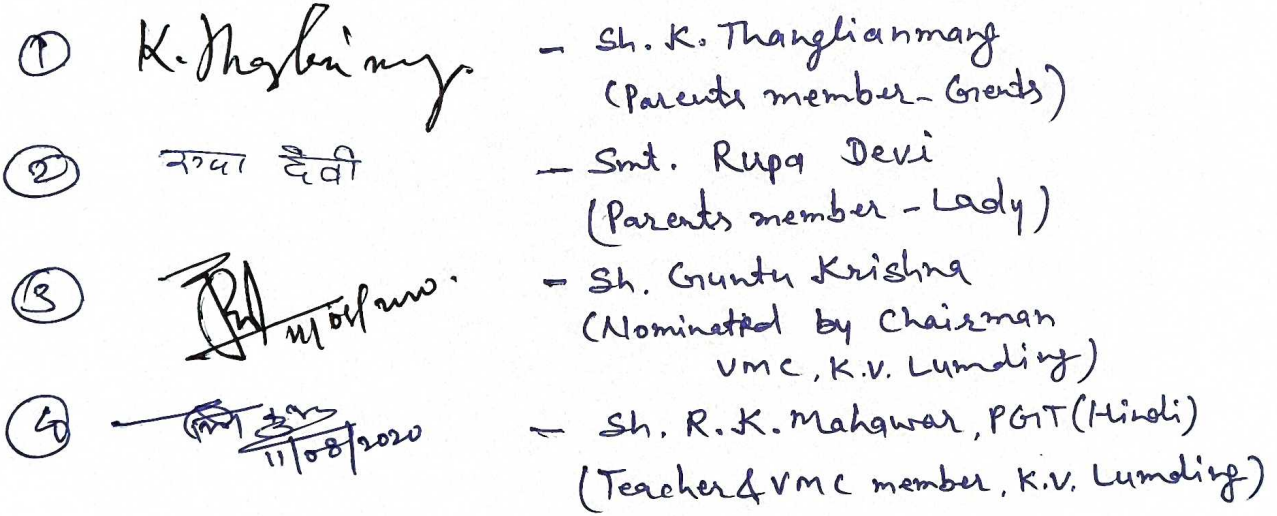 ① K. Thaglinmng. - Sh. K. Thanglianmang
(Parents member - Gents)
② रूपा देवी - Smt. Rupa Devi
(Parents member - Lady)
③ 11/08/2020. - Sh. Guntu Krishna
(Nominated by Chairman
VMC, K.V. Lumding)
④ 11/08/2020 - Sh. R. K. Mahawar, PGT (Hindi)
(Teacher & VMC member, K.V. Lumding)